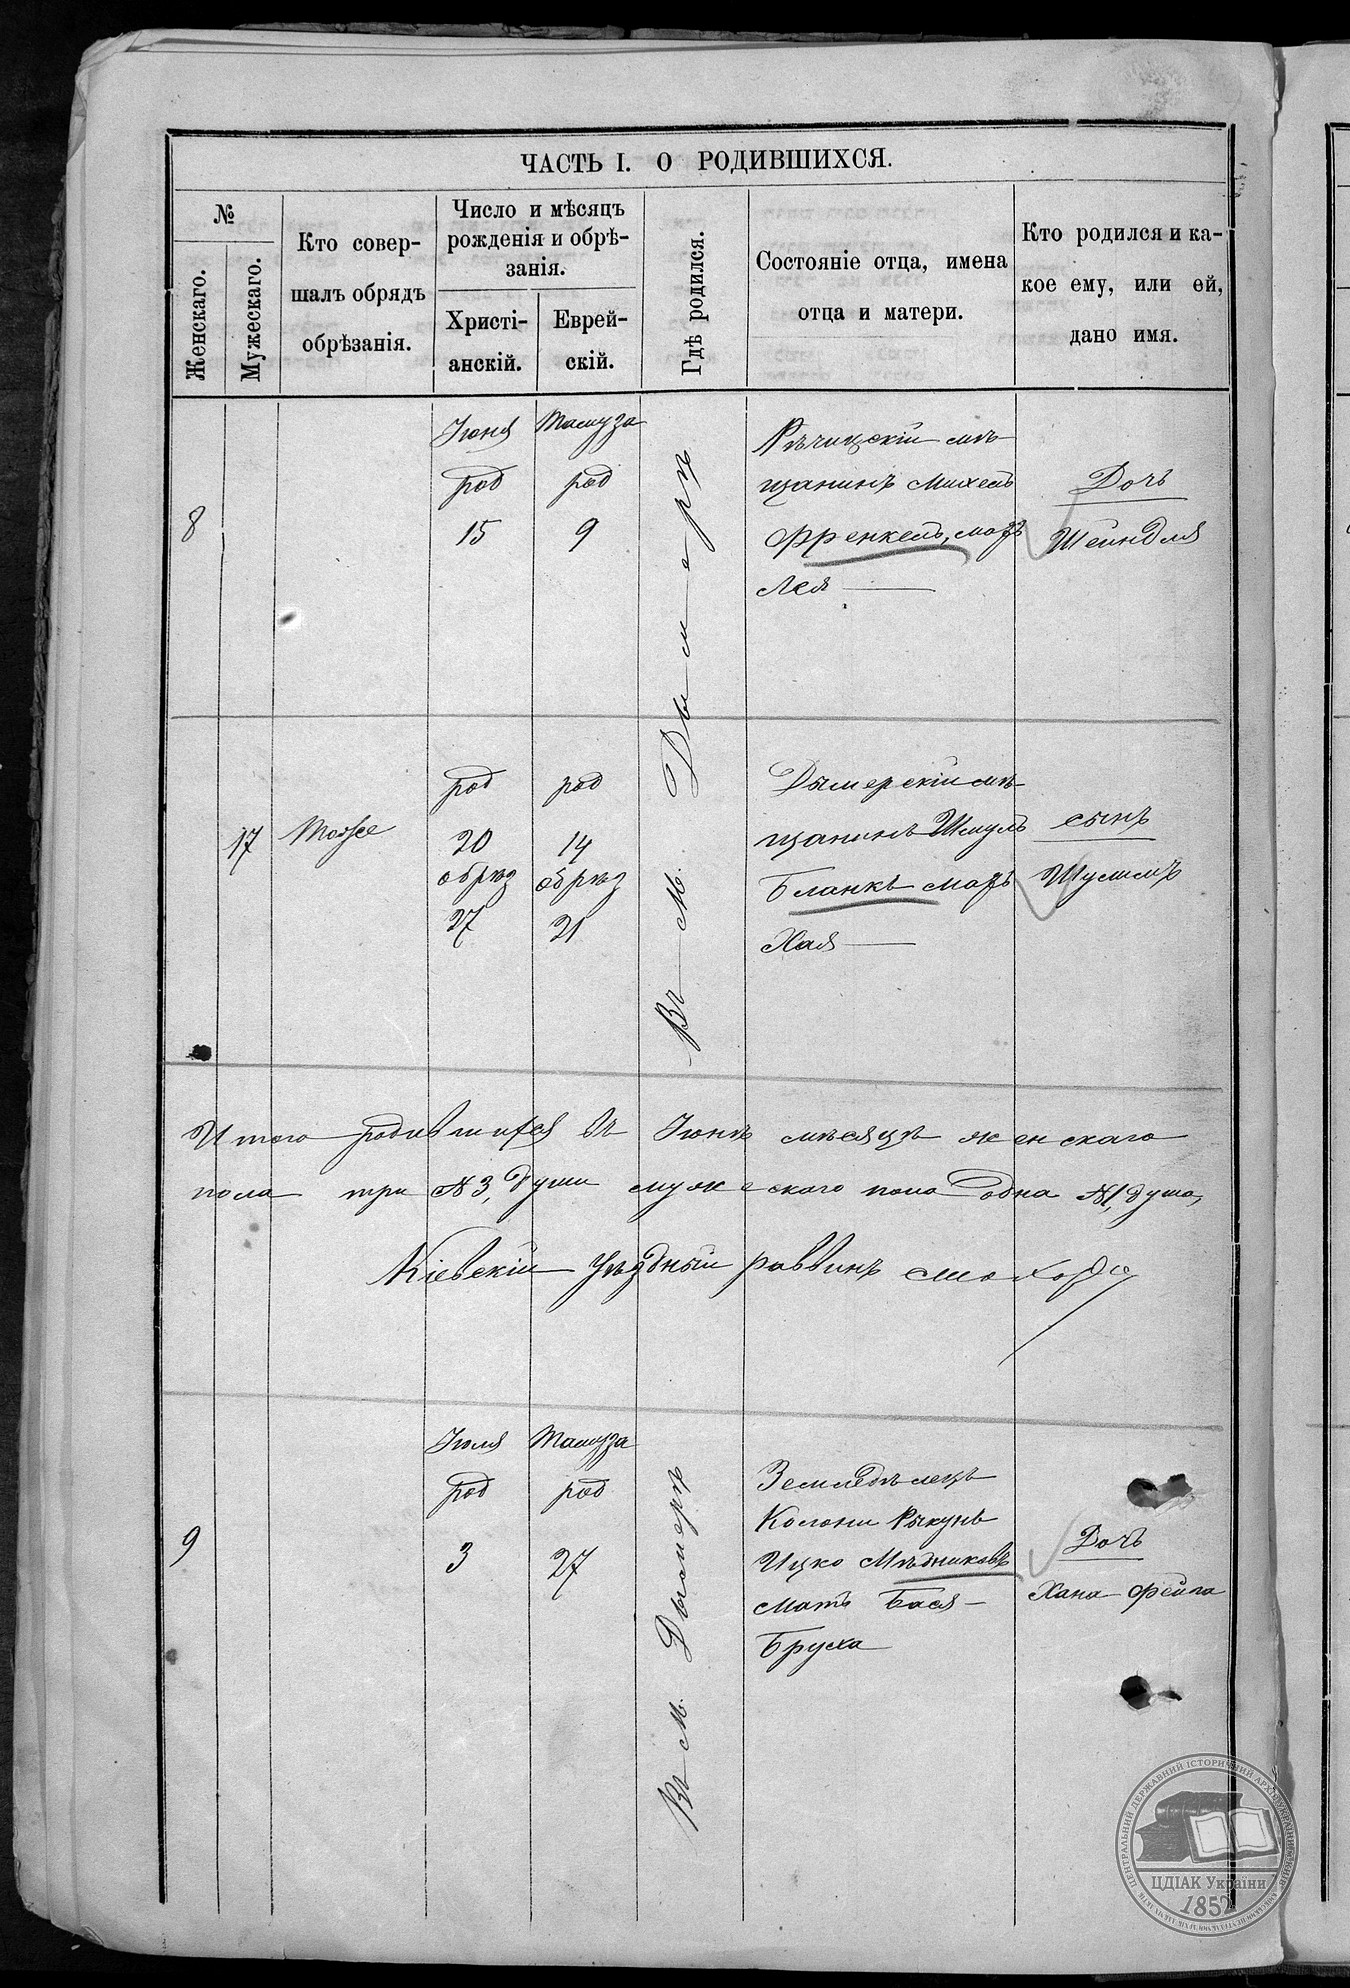 ЧАСТЬ I. О РОДИВШИХСЯ.
№
Женскаго.
Мужескаго.
Кто совер-
шалъ обрядъ
обрѣзанія.
Число и мѣсяцъ
рожденія и обрѣ-
занія.
Христі-
анскій.
Еврей-
скій.
Гдѣ родился.
Состояніе отца, имена
отца и матери.
Кто родился и ка-
кое ему, или ей,
дано имя.
8
Іюня
род
15
Тамуза
род
9
Въ М. Дымерѣ
Рѣчицскій мѣ-
щанинъ Михель
Френкель, мать
Лея
Дочь
Шейндля
17
Мойсе
род
20
обрѣз
27
род
14
обрѣз
21
Дымерскій мѣ-
щанинъ Шмуль
Бланкъ мать
Хая
сынъ
Шулимъ
Итого родившихся въ Іюнѣ мѣсяцѣ женскаго
пола три № 3, души мужескаго пола одна № 1, душа,
Кіевскій уѣздный раввинъ
9
Іюля
род
3
Тамуза
род
27
Въ М. Дымерѣ
Земледѣлецъ
Колоніи Рыкунь
Ицко Мѣдниковъ
мать Бася-
Бруха
Дочь
Хана Фейга
ЦЕНТРАЛЬНИЙ ДЕРЖАВНИЙ ІСТОРИЧНИЙ АРХІВ УКРАЇНИ
ЦДІАК України
1852